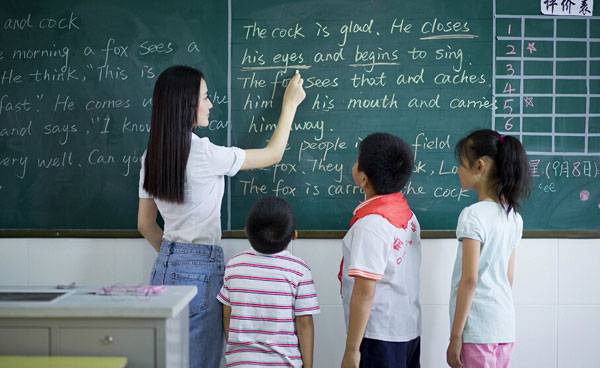 and cock
morning a fox sees a
He think, "This is
fast! He comes u
and says, "I know
can
very well. Can you
The cock is glad. He closes
his eyes and begins to sing.
The fox sees that and caches
him his mouth and carries
him way.
people is field
fox. They Lo
The fox is carr the cock
评价表
1
2
3
4
5
6
星(9月8日)